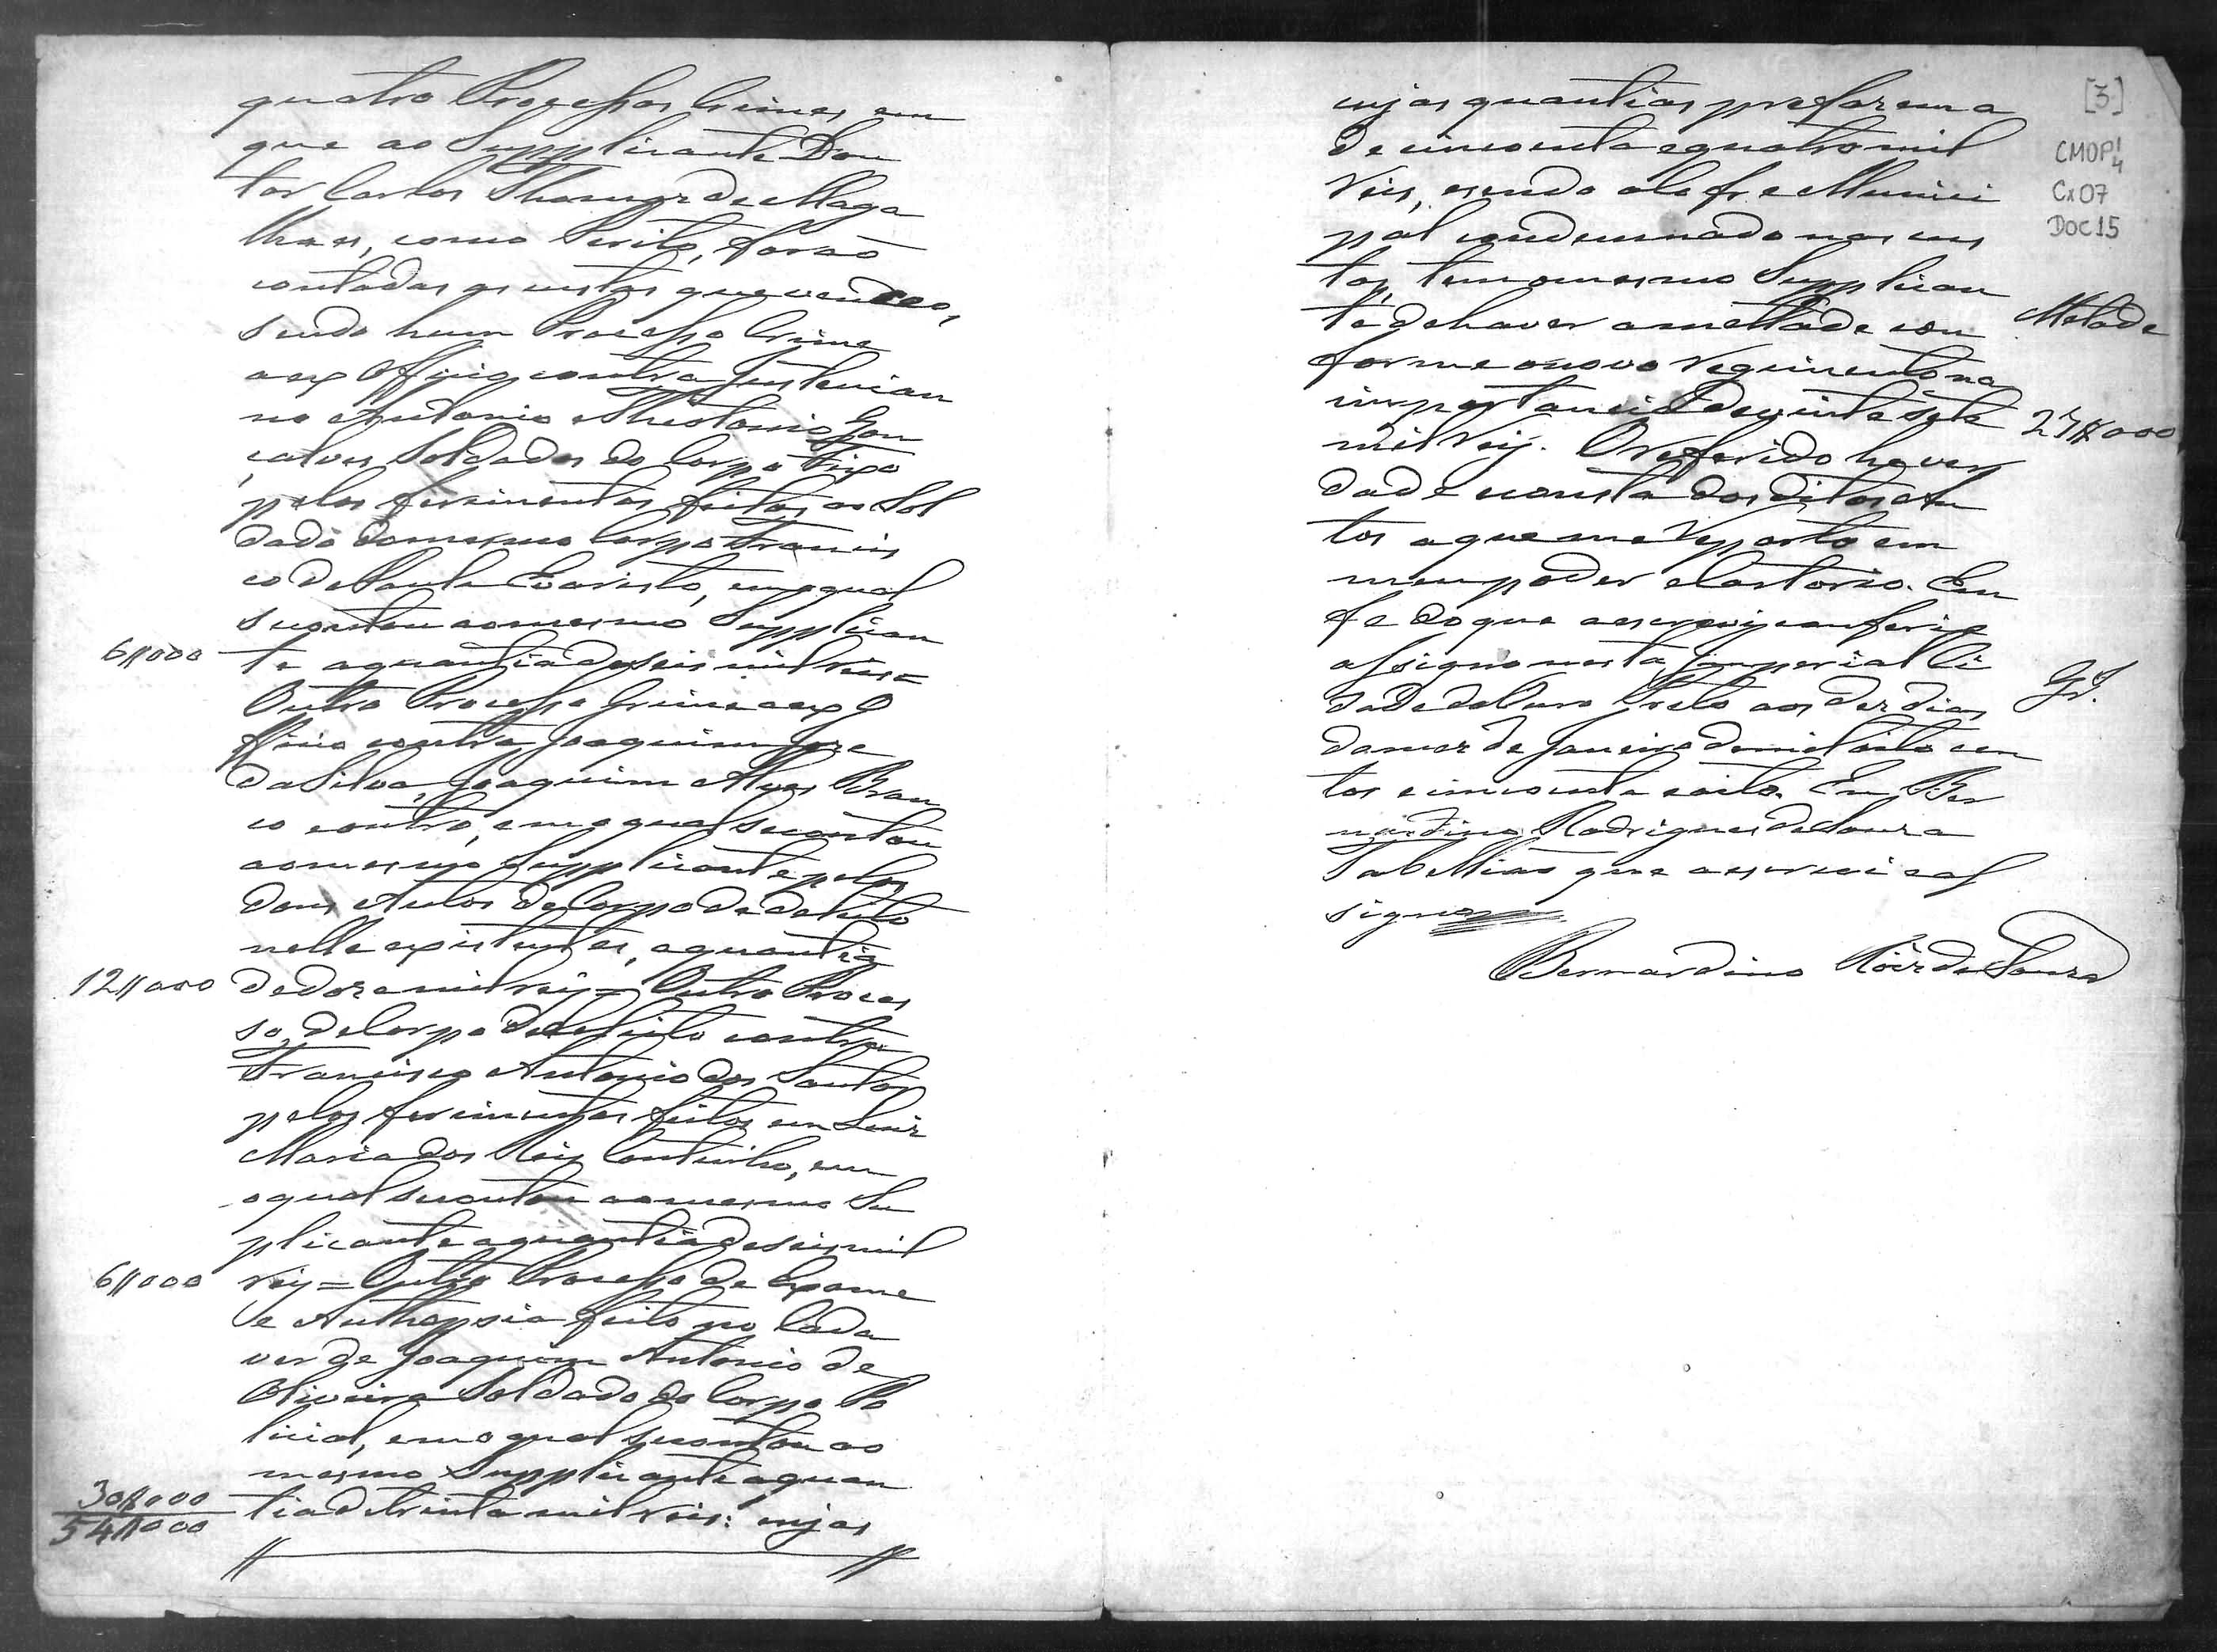 quatro Processos Crimes em
que ao Supplicante Dou
tor Carlos Thomaz de Maga
lhaes, como Perito, forão
contadas as custas que venceo,
sendo hum Processo Crime
a ex Officio contra Justinian
no Antonio e Theotonio Gon
çalves Soldados do Corpo Fixo
pelos ferimentos feitos ao Sol
dado do mesmo Corpo Francis
co de Paula Evaristo, em o qual
se contou ao mesmo Supplican
6$000 te a quantia de seis mil reis =
Outro Processo Crime a ex O
fficio contra Joaquim Jose
da Silva, Joaquim Alves Bran
co e outro, em o qual se contou
ao mesmo Supplicante pelos
dous Autos de Corpo de delicto
nelle existentes, a quantia
12$000 de doze mil reis = Outro Proces
so de Corpo de delicto contra
Francisco Antonio dos Santos
pelos ferimentos feitos em Luiz
Maria dos Reis Coutinho, em
o qual se contou ao mesmo Su
plicante a quantia de seis mil
6$000 reis = Outro Processo de Exame
e Authopsia feito no Cada
ver de Joaquim Antonio de
Oliveira Soldado do Corpo Po
licial, em o qual se contou ao
mesmo Supplicante a quan
30$000 tia de trinta mil reis: cujas
54$000
[3]
CMOP
4
Cx07
DOC15
cujas quantias prefas em a
de cincoenta e quatro mil
reis, e sendo o Cofre Munici
pal condemnado nas cus
tas, tem o mesmo Supplican
te de haver a mettade con Metade
forme o novo regimento na
importancia de vinte sete 27$000
mil reis. O referido he ver
dade e consta dos ditos Au
tos a que me reporto em
meu poder e Cartorio. Em
fe do que a escrevy conferi e
assigno nesta Imperial Ci
dade do Ouro Preto aos dez dias Gs.
do mez de Janeiro de mil oito cen
tos e cincoenta e oito. Eu Ber
nardino Rodrigues de Souza
Tabellião que a escrevi e as
signo
Bernardino Roiz de Souza